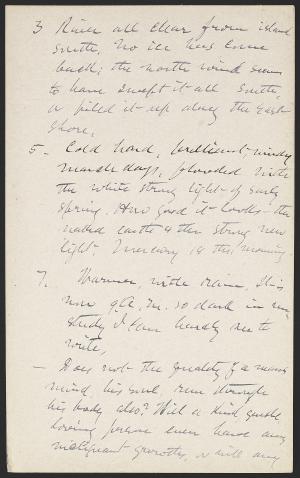 3 River all clear from island
south. No ice has come
back; the north wind seems
to have swept it all south
or piled it up along the East
shore.
5 - Cold hard, brilliant, windy
march days, flooded with
the white strong light of early
spring. How good it looks - the
naked earth & the strong new
light. Mercury 18 this morning.
7. Warmer, with rain. It is
now 9 A.M. so dark in my
study I can hardly see to
write,
- Does not the quality of a mans
mind, his soul, run through
his body also? Will a kind gentle
loving person ever have any
malignant growths, or will any